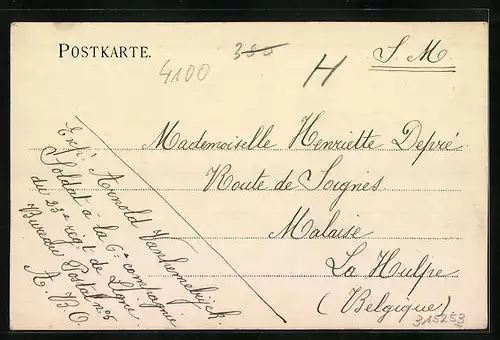 POSTKARTE.
380
4100
H
S. M.
Mademoiselle Henriette Depré
Route de Soignes
Malaise
La Hulpe
(Belgique)
315253
Expr Arnold Vanhemelrijck.
Soldat à la 6e compagnie
du 23e régt de Ligne
Bureau Postal n°5
A. B. O.